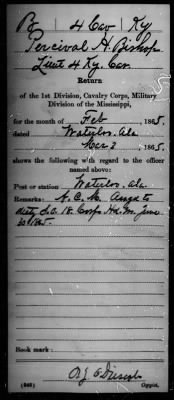 B 4 Cav Ky
Percival H. Bishop
Lieut 4 Ky. Cav.
Return
of the 1st Division, Cavalry Corps, Military
Division of the Mississippi,
for the month of Feb, 1865.
dated Waterloo, Ala
Mar 3, 1865.
shows the following with regard to the officer
named above:
Post or station Waterloo, Ala
Remarks: A. C. M.
duty S.O. 18. Corps
30 1865.
Book mark:
(646) Copyist.